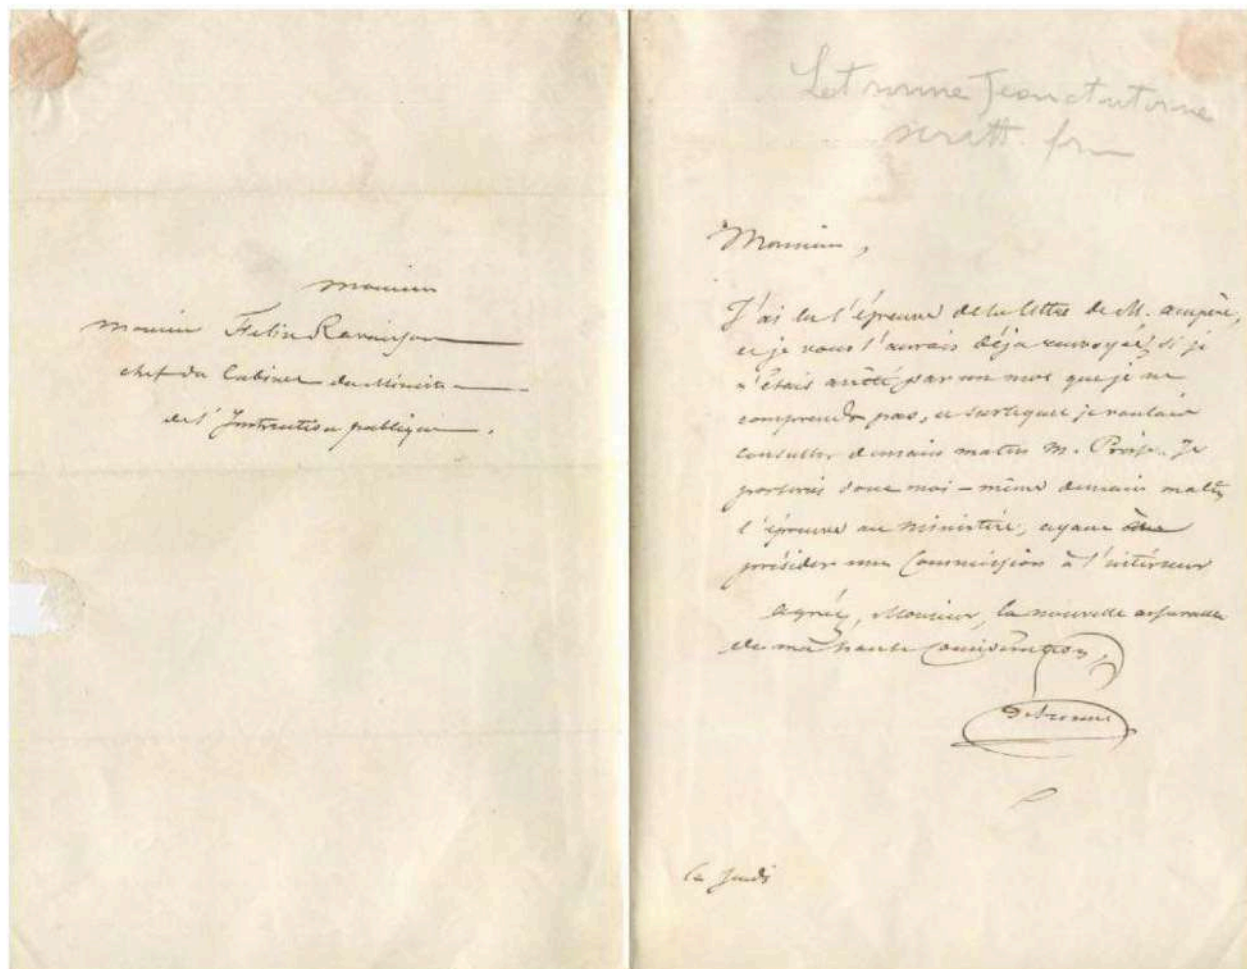 monsieur
monsieur Felix Ravaisson
chef du Cabinet du Ministre
de l'Instruction publique.
Letronne Jean Antoine
Monsieur,
J'ai lu l'épreuve de la lettre de M. ampère,
et je vous l'aurais déja renvoyée, si je
n'étais arrêté par un mot que je ne
comprends pas, et sur lequel je voulais
consulter demain matin M.
porterai donc moi-même demain matin
l'épreuve au ministère, ayant
présider une Commission à l'intérieur
agréez, Monsieur, la nouvelle assurance
de ma haute Considération,
Letronne
ce Jeudi